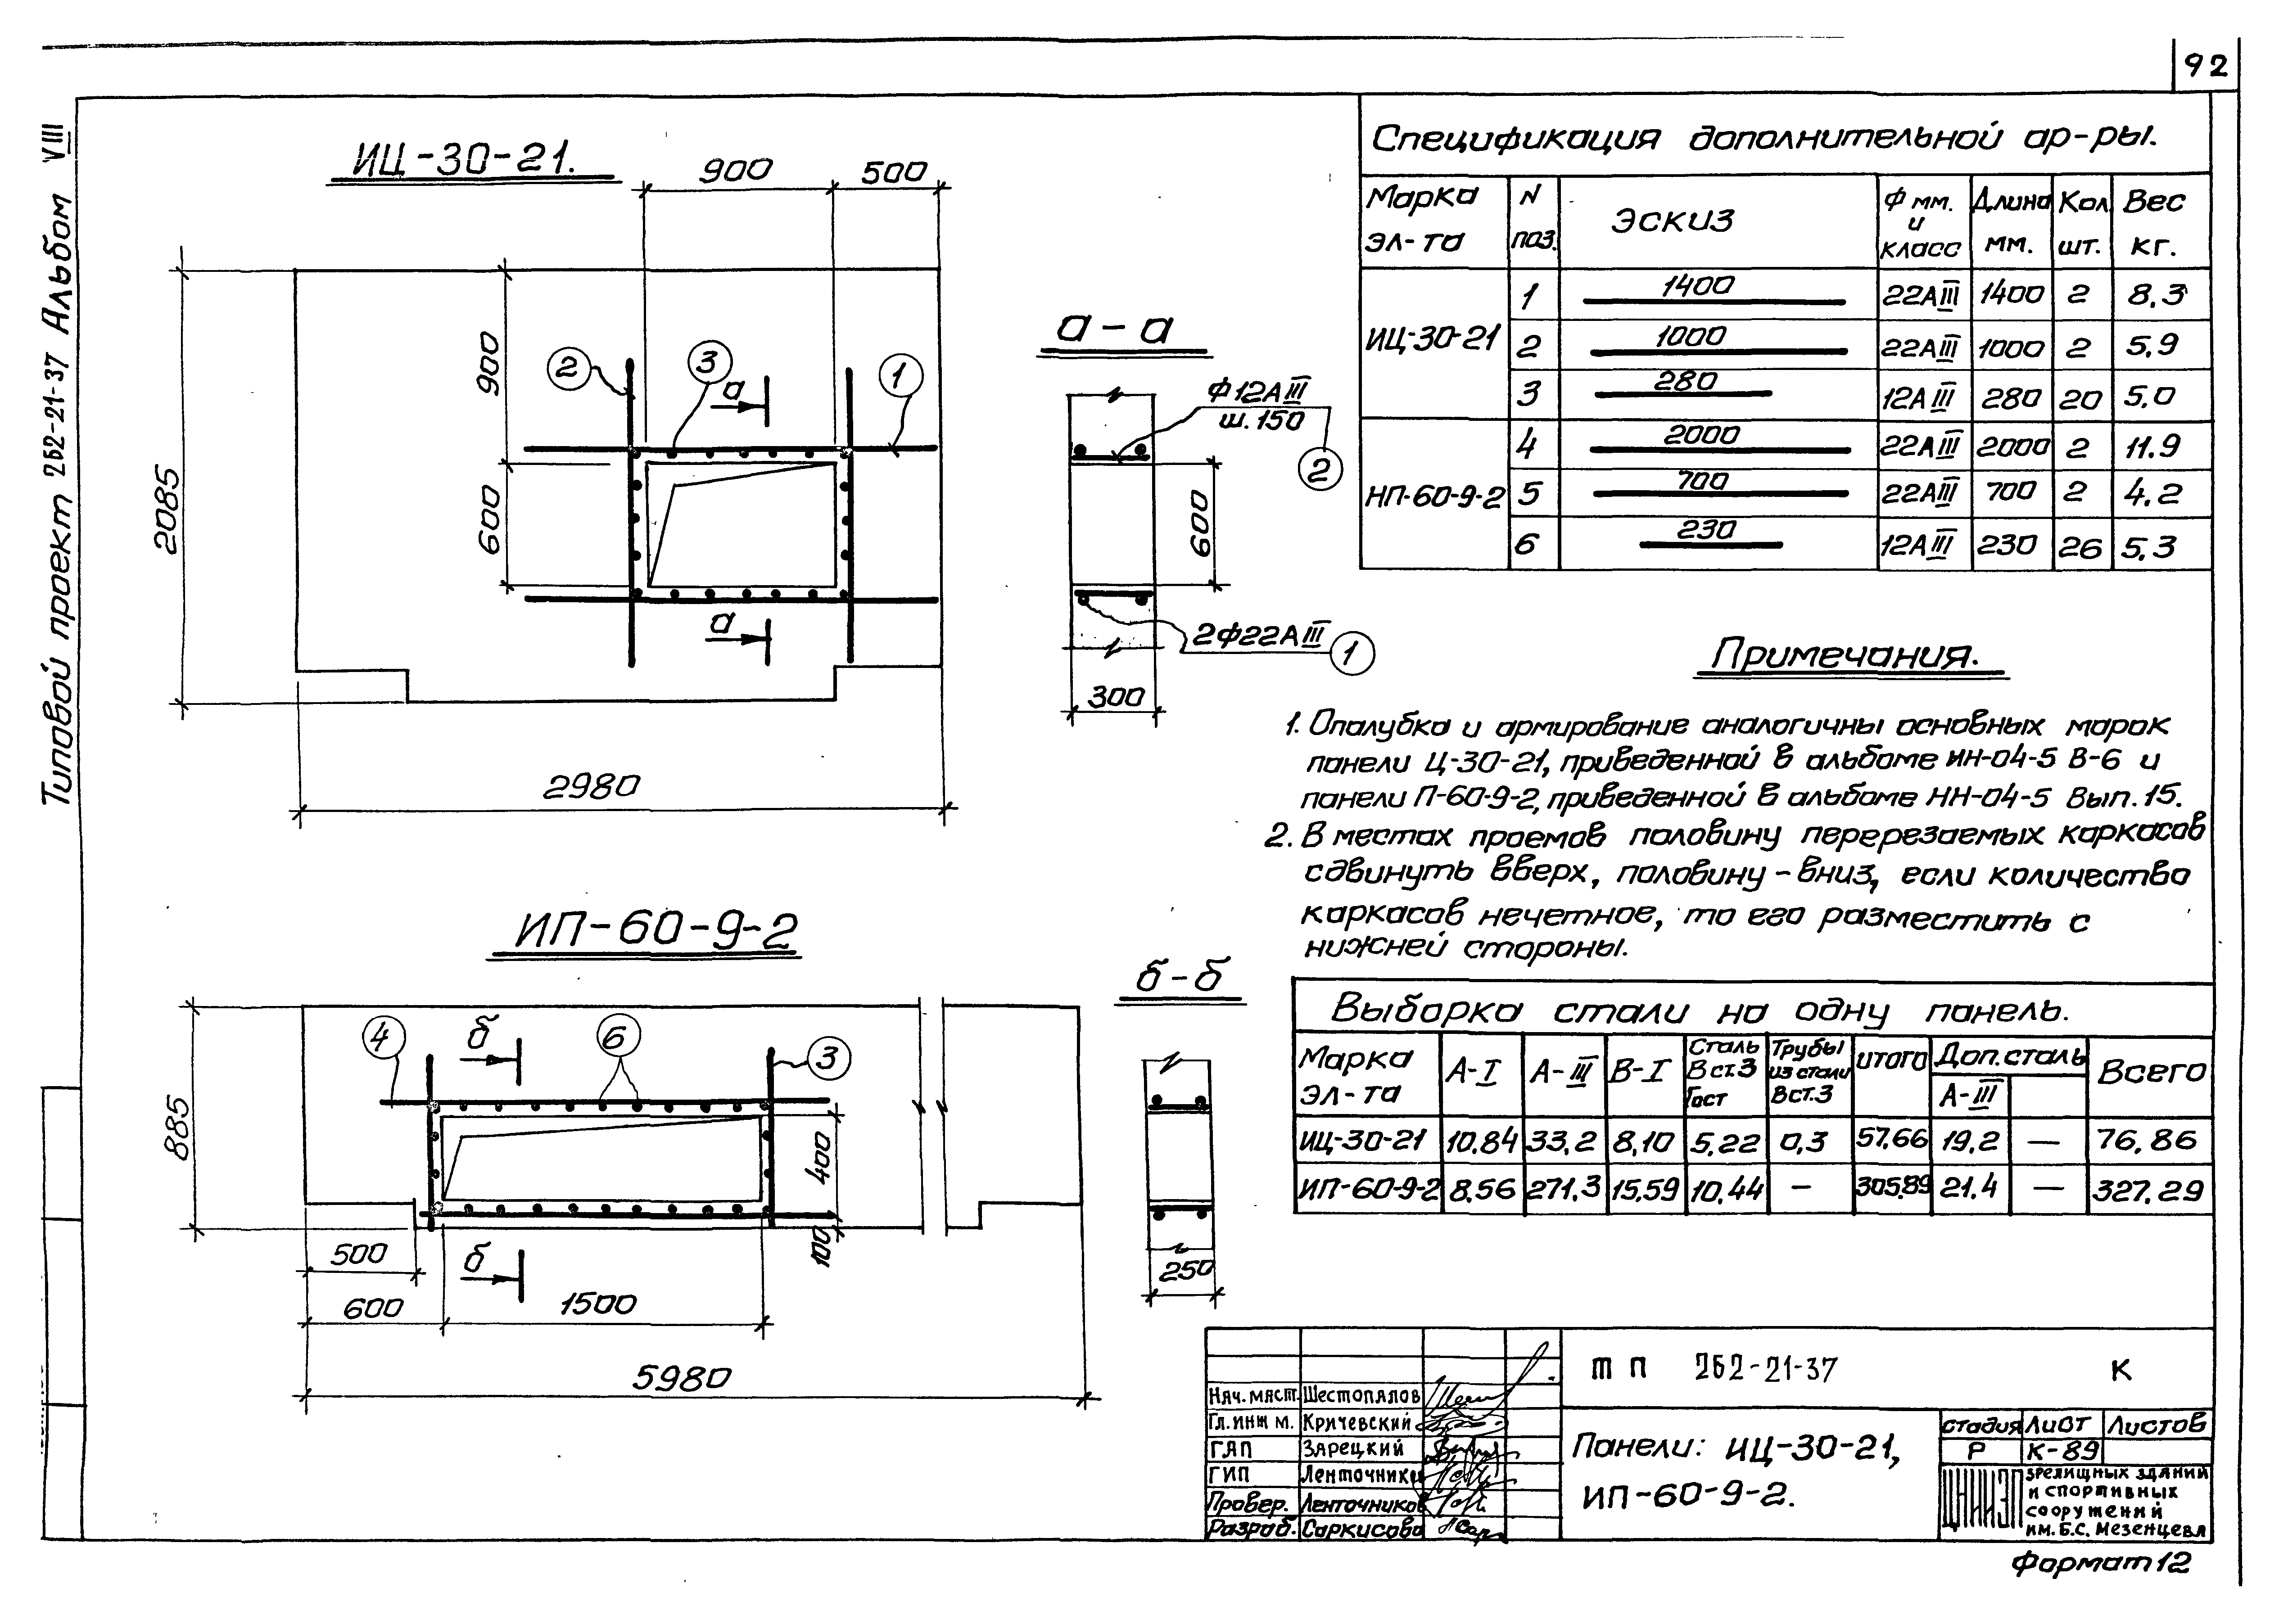 92
Типовой проект 262-21-37 Альбом VIII
ИЦ-30-21.
900
500
900
600
2085
2980
2
3
1
а
а
а-а
Ф12АIII
ш.150
2
600
2Ф22АIII
1
300
ИП-60-9-2
885
4
б
6
3
400
100
б
500
600
1500
5980
б-б
250
Спецификация дополнительной ар-ры.
Марка эл-та | N поз. | Эскиз | Ф мм. и класс | Длина мм. | Кол. шт. | Вес кг.
ИЦ-30-21 | 1 | 1400 | 22АIII | 1400 | 2 | 8.3
2 | 1000 | 22АIII | 1000 | 2 | 5.9
3 | 280 | 12АIII | 280 | 20 | 5.0
НП-60-9-2 | 4 | 2000 | 22АIII | 2000 | 2 | 11.9
5 | 700 | 22АIII | 700 | 2 | 4.2
6 | 230 | 12АIII | 230 | 26 | 5.3
Примечания.
1. Опалубка и армирование аналогичны основных марок
панели Ц-30-21, приведенной в альбоме ИН-04-5 В-6 и
панели П-60-9-2, приведенной в альбоме НН-04-5 Вып.15.
2. В местах проемов половину перерезаемых каркасов
сдвинуть вверх, половину-вниз, если количество
каркасов нечетное, то его разместить с
нижней стороны.
Выборка стали на одну панель.
Марка эл-та | А-I | А-III | В-I | Сталь В ст.3 Гост | Трубы из стали Вст.3 | итого | Доп.сталь А-III | Всего
ИЦ-30-21 | 10.84 | 33,2 | 8,10 | 5.22 | 0,3 | 57.66 | 19,2 | — | 76.86
ИП-60-9-2 | 8,56 | 271,3 | 15,59 | 10,44 | — | 305.89 | 21.4 | — | 327.29
Нач.маст. Шестопалов
Гл.инж м. Кричевский
ГАП Зарецкий
ГИП Ленточников
Провер. Ленточников
Разраб. Саркисова
тп 262-21-37 К
Панели: ИЦ-30-21,
ИП-60-9-2.
стадия Лист Листов
Р К-89
ЦНИИЭП
зрелищных зданий
и спортивных
сооружений
им. Б.С. Мезенцева
Формат 12